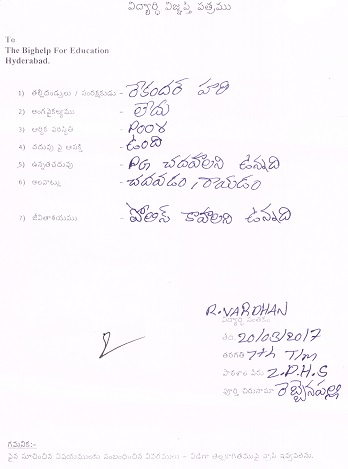 విద్యార్థి విజ్ఞప్తి పత్రము
To
The Bighelp For Education
Hyderabad.
1) తల్లిదండ్రులు / సంరక్షకుడు - రెకందర్ హరి
2) అంగవైకల్యము - లేదు
3) ఆర్థిక పరిస్థితి - Poor
4) చదువు పై ఆసక్తి - ఉంది
5) ఉన్నతచదువు - PG చదవాలని ఉన్నది
6) అలవాట్లు - చదవడం, రాయడం
7) జీవితాశయము - పోలీస్ కావాలని ఉన్నది
R. VARDHAN
విద్యార్థి సంతకం
తేది 20/03/2017
తరగతి 7th T/m
పాఠశాల పేరు Z.P.H.S
పూర్తి చిరునామా రెబ్బెనపల్లి
గమనిక:-
పైన సూచించిన విషయములకు సంబంధించిన వివరములు - విడిగా తెల్లకాగితముపై వ్రాసి ఇవ్వవలెను.